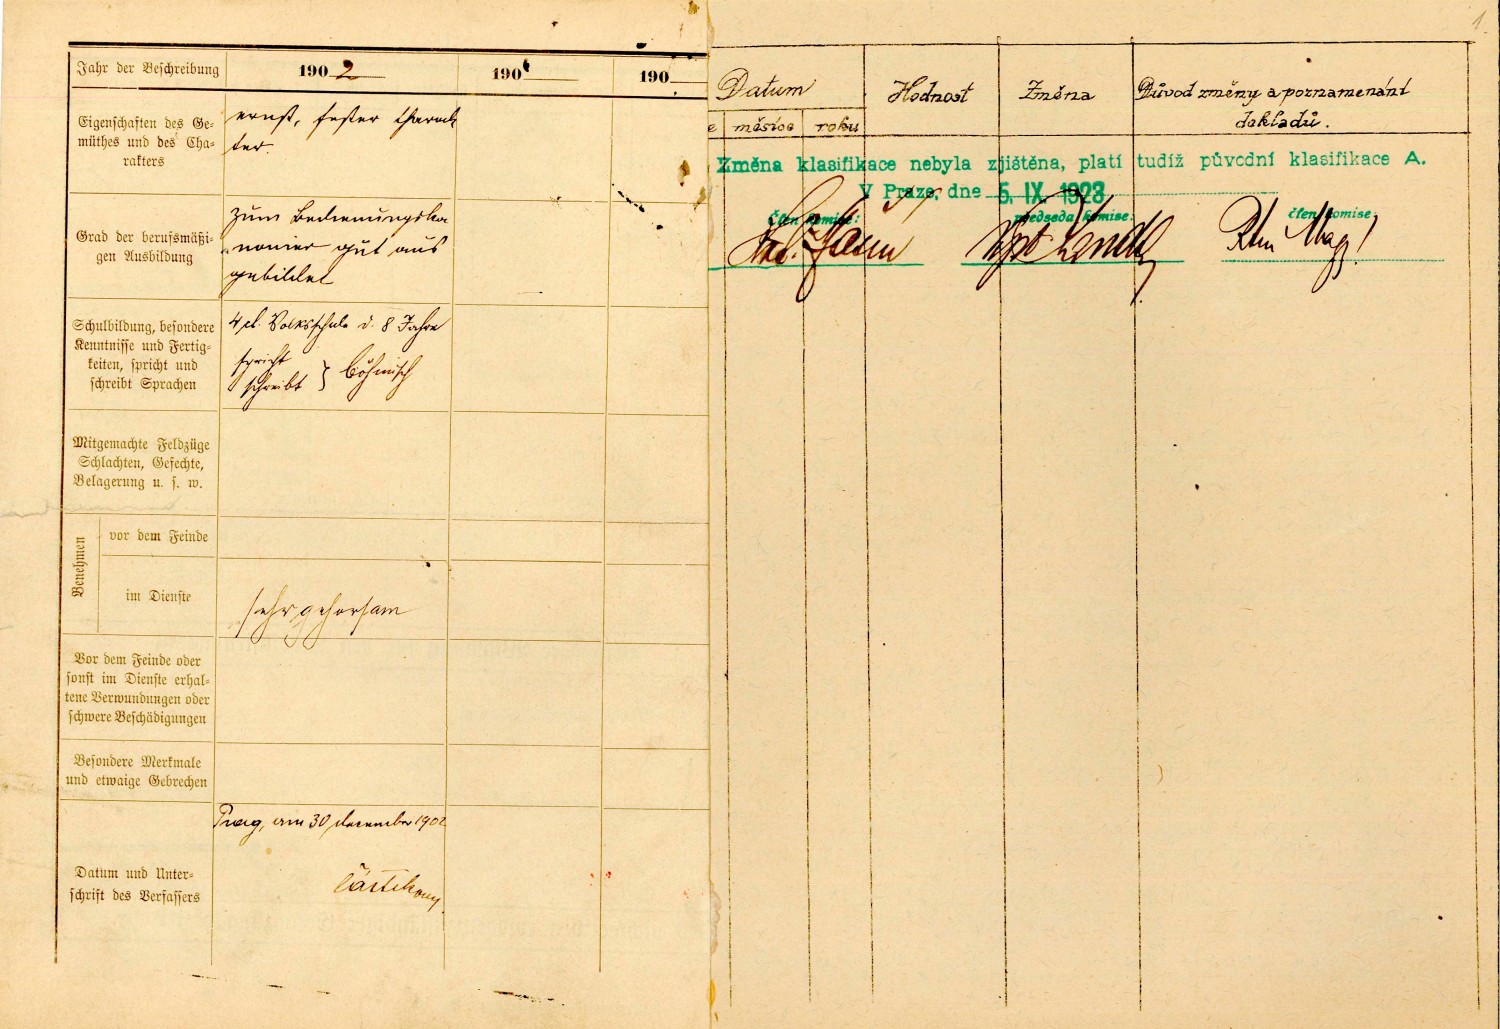 Jahr der Beschreibung 1902 190 190
Eigenschaften des Ge-
müthes und des Cha-
rakters
ernst, fester Charak
ter.
Grad der berufsmäßi-
gen Ausbildung
zum Bedienungska
nonier gut aus
gebildet
Schulbildung, besondere
Kenntnisse und Fertig-
keiten, spricht und
schreibt Sprachen
4 cl. Volksschule d. 8 Jahre
spricht
schreibt } böhmisch
Mitgemachte Feldzüge
Schlachten, Gefechte,
Belagerung u. s. w.
Benehmen
vor dem Feinde
im Dienste
sehr gehorsam
Vor dem Feinde oder
sonst im Dienste erhal-
tene Verwundungen oder
schwere Beschädigungen
Besondere Merkmale
und etwaige Gebrechen
Datum und Unter-
schrift des Verfassers
Prag, am 30 december 1902
1.
Datum Hodnost Změna Důvod změny a poznamenání
dokladů.
e měsíce roku
Změna klasifikace nebyla zjištěna, platí tudíž původní klasifikace A.
V Praze, dne 5. IX. 1923
člen komise: předseda komise: člen komise: